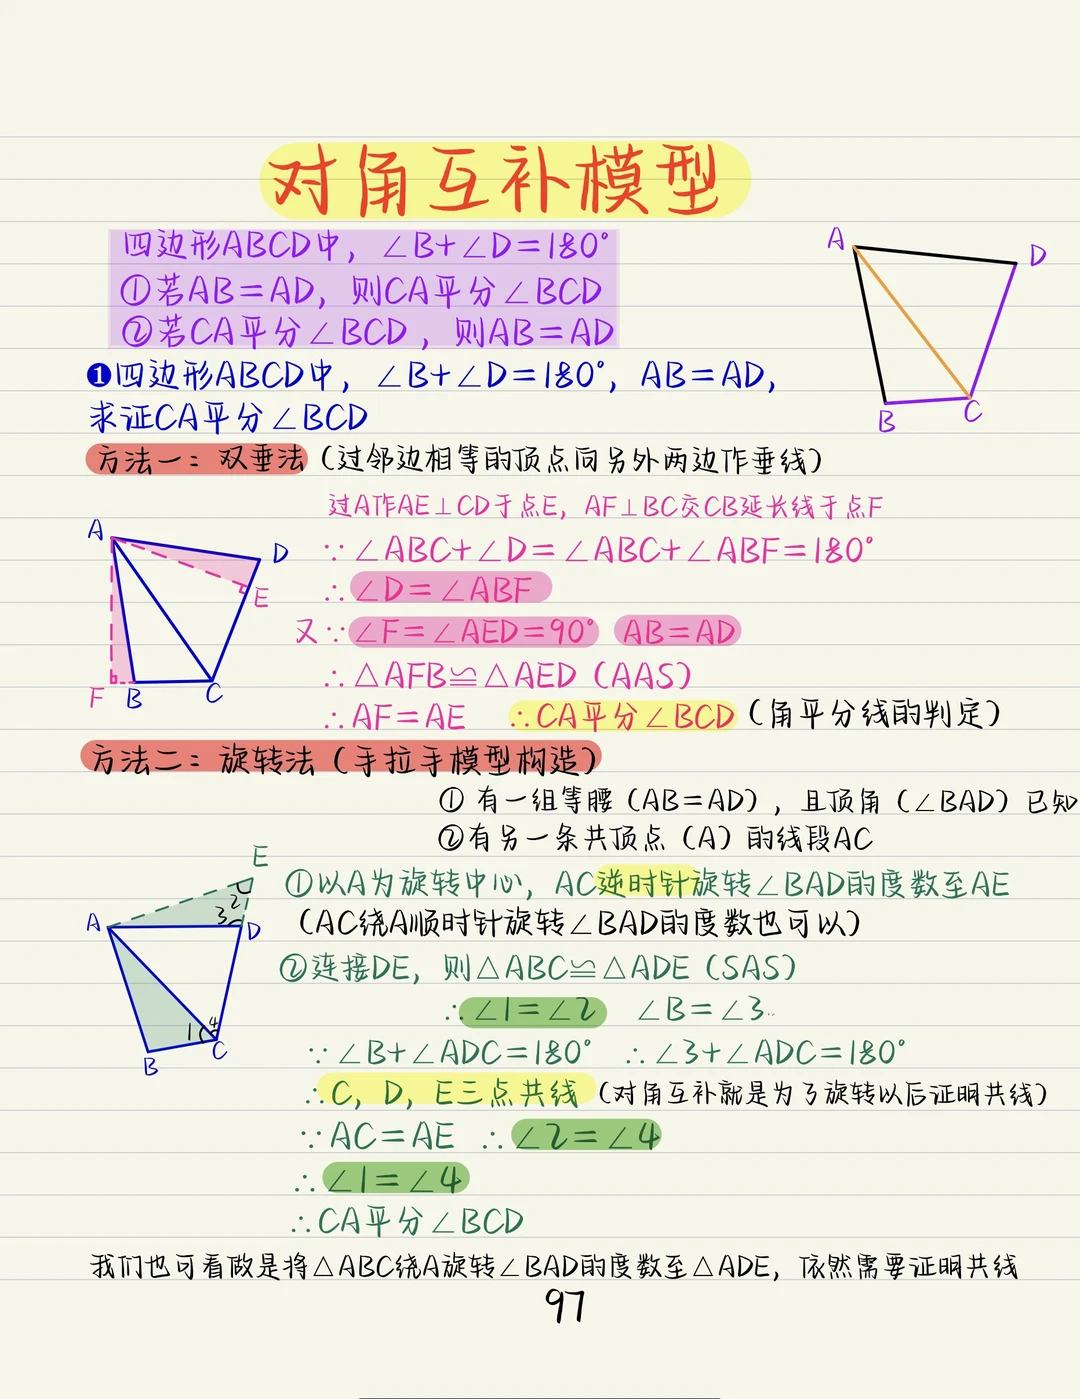 对角互补模型
四边形ABCD中，∠B+∠D=180°
①若AB=AD，则CA平分∠BCD
②若CA平分∠BCD，则AB=AD
A
D
B
C
❶四边形ABCD中，∠B+∠D=180°，AB=AD，
求证CA平分∠BCD
方法一：双垂法（过邻边相等的顶点向另外两边作垂线）
过A作AE⊥CD于点E，AF⊥BC交CB延长线于点F
A
D
E
F
B
C
∵∠ABC+∠D=∠ABC+∠ABF=180°
∴∠D=∠ABF
又∵∠F=∠AED=90° AB=AD
∴△AFB≌△AED（AAS）
∴AF=AE ∴CA平分∠BCD（角平分线的判定）
方法二：旋转法（手拉手模型构造）
①有一组等腰（AB=AD），且顶角（∠BAD）已知
②有另一条共顶点（A）的线段AC
E
2
3
A
D
1
4
C
B
①以A为旋转中心，AC逆时针旋转∠BAD的度数至AE
（AC绕A顺时针旋转∠BAD的度数也可以）
②连接DE，则△ABC≌△ADE（SAS）
∴∠1=∠2 ∠B=∠3
∵∠B+∠ADC=180° ∴∠3+∠ADC=180°
∴C，D，E三点共线（对角互补就是为了旋转以后证明共线）
∵AC=AE ∴∠2=∠4
∴∠1=∠4
∴CA平分∠BCD
我们也可看做是将△ABC绕A旋转∠BAD的度数至△ADE，依然需要证明共线
97